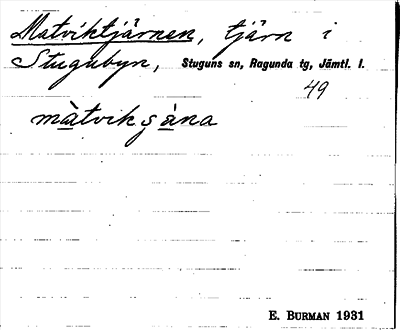 Matviktjärnen, tjärn i
Stugubyn, Stuguns sn, Ragunda tg, Jämtl. l.
49
màtvikşàna
E. BURMAN 1931